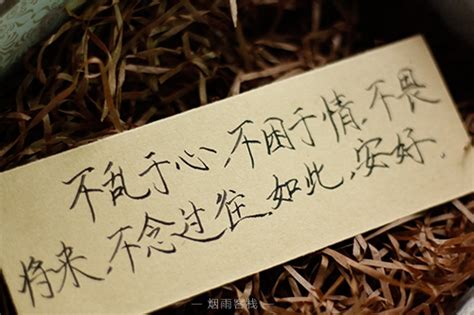 不乱于心,不困于情,不畏
将来,不念过往.如此,安好.
— 烟雨客栈 —